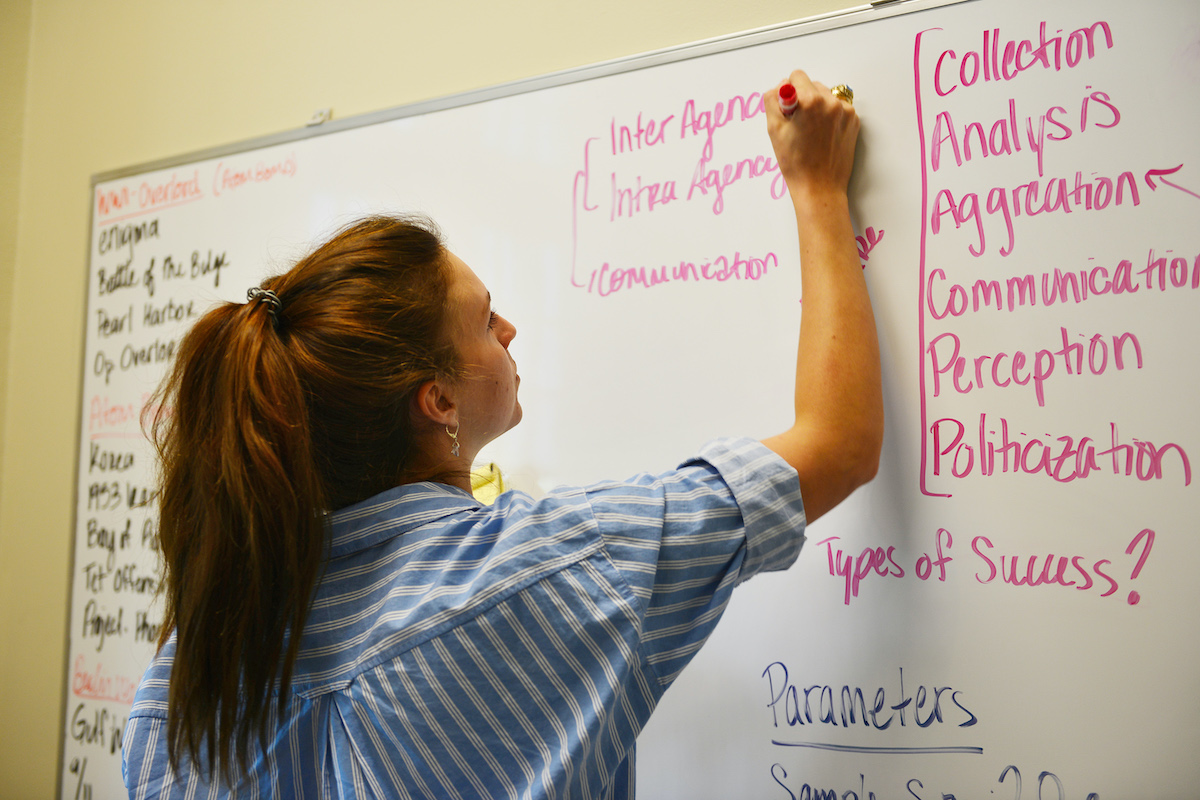 WWII-Overlord (Atom Bomb)
enigma
Battle of the Bulge
Pearl Harbor
Op Overlor
Atom
Korea
1953
Bay of
Tet Offens
Project
Gulf
9/11
Inter Agenc
Intra Agency
Communication
Collection
Analysis
Aggreation
Communication
Perception
Politicization
Types of Success?
Parameters
Sample